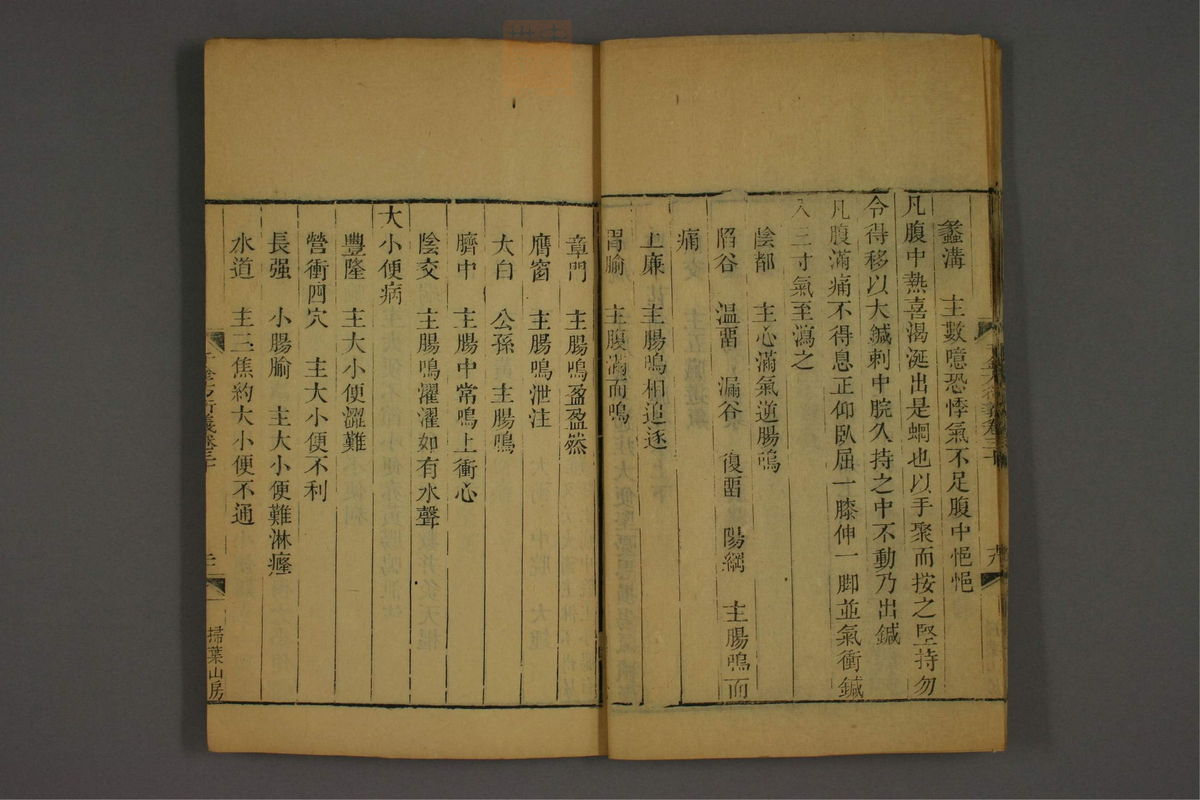 蠡溝　主數噫恐悸氣不足腹中悒悒
凡腹中熱喜渴涎出是蛔也以手聚而按之堅持勿
令得移以大鍼刺中脘久持之中不動乃出鍼
凡腹滿痛不得息正仰臥屈一膝伸一脚並氣衝鍼
入三寸氣至瀉之
陰都　主心滿氣逆腸鳴
陷谷　温畱　漏谷　復畱　陽綱　主腸鳴而
痛
上廉　主腸鳴相追逐
胃腧　主腹滿而鳴
章門　主腸鳴盈盈然
膺窗　主腸鳴泄注
大白　公孫　主腸鳴
臍中　主腸中常鳴上衝心
陰交　主腸鳴濯濯如有水聲
大小便病
豐隆　主大小便澀難
營衝四穴　主大小便不利
長强　小腸腧　主大小便難淋癃
水道　主三焦約大小便不通
掃葉山房